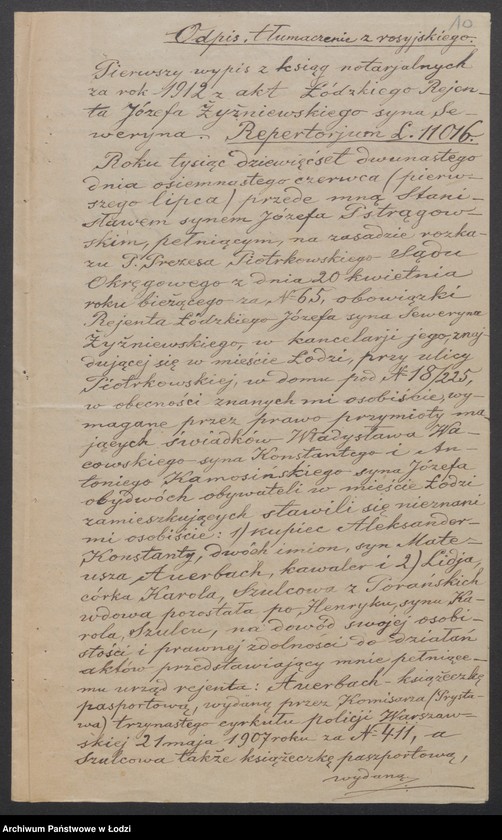 10
Odpis. tłumaczenie z rosyjskiego.
Pierwszy wypis z ksiąg notarjalnych
za rok 1912 z akt Łódzkiego Rejen-
ta Józefa Żyźniewskiego syna Se-
weryna.- Repertorjum L. 11076.
Roku tysiąc dziewięćset dwunastego
dnia osiemnastego czerwca (pierw-
szego lipca) przede mną Stani-
sławem synem Józefa Pstrągow-
skim, pełniącym, na zasadzie rozka-
zu P. Prezesa Piotrkowskiego Sądu
Okręgowego z dnia 20 kwietnia
roku bieżącego za № 65, obowiązki
Rejenta Łódzkiego Józefa syna Seweryna
Żyźniewskiego, w kancelarji jego, znaj-
dującej się w mieście Łodzi, przy ulicy
Piotrkowskiej, w domu pod № 18/225,
w obecności znanych mi osobiście, wy-
magane przez prawo przymioty ma-
jących świadków Władysława Wa-
cowskiego syna Konstantego i An-
toniego Kamosińskiego syna Józefa
obydwóch obywateli w mieście Łodzi
zamieszkujących stawili się nieznani
mi osobiście: 1) kupiec Aleksander-
Konstanty, dwóch imion, syn Mate-
usza Auerbach, kawaler i 2) Lidja,
córka Karola, Szulcowa z Porańskich
wdowa pozostała po Henryku, synu Ka-
rola, Szulcu, na dowód swojej osobi-
stości i prawnej zdolności do działań
aktów przedstawiający mnie pełniące-
mu urząd rejenta: Auerbach - książeczkę
pasportową, wydaną przez Komisarza (Prysta-
wa) trzynastego cyrkułu policji Warszaw-
skiej 21 maja 1907 roku za № 411, a
Szulcowa także książeczkę paszportową,
wydaną
Archiwum Państwowe w Łodzi